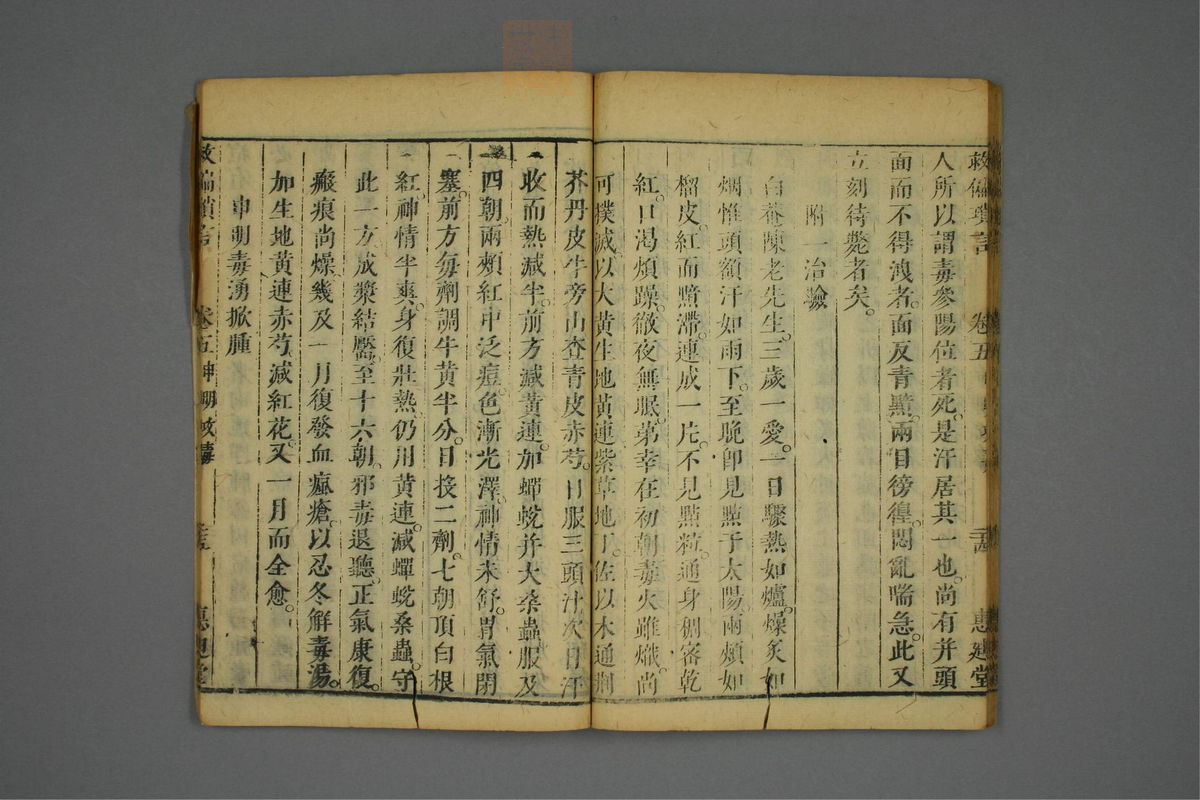 救偏瑣言 卷五 惠迪堂
人所以謂毒參陽位者死是汗居其一也尚有并頭
面而不得洩者面反青黯兩目徬徨悶亂喘急此又
立刻待斃者矣
附一治驗
白菴陳老先生三歲一愛一日驟熱如爐燥炙如
烟惟頭額汗如雨下至晚卽見點于太陽兩頰如
榴皮紅而黯滯連成一片不見點粒通身稠密乾
紅口渴煩躁徹夜無眠第幸在初朝毒火雖熾尚
可撲滅以大黃生地黃連紫草地丁佐以木通荆
芥丹皮牛旁山查青皮赤芍日服三頭汁次日汗
收而熱減半前方減黃連加蟬蛻并大桑蟲服及
四朝兩頰紅中泛痘色漸光澤神情未舒胃氣閉
塞前方每劑調牛黃半分日接二劑七朝頂白根
紅神情半爽身復壯熱仍用黃連減蟬蛻桑蟲守
此一方成漿結靨至十六朝邪毒退聽正氣康復
瘢痕尚燥幾及一月復發血瘋瘡以忍冬解毒湯
加生地黃連赤芍減紅花又一月而全愈
申明毒湧掀腫
救偏瑣言 卷五申明放毒 惠迪堂